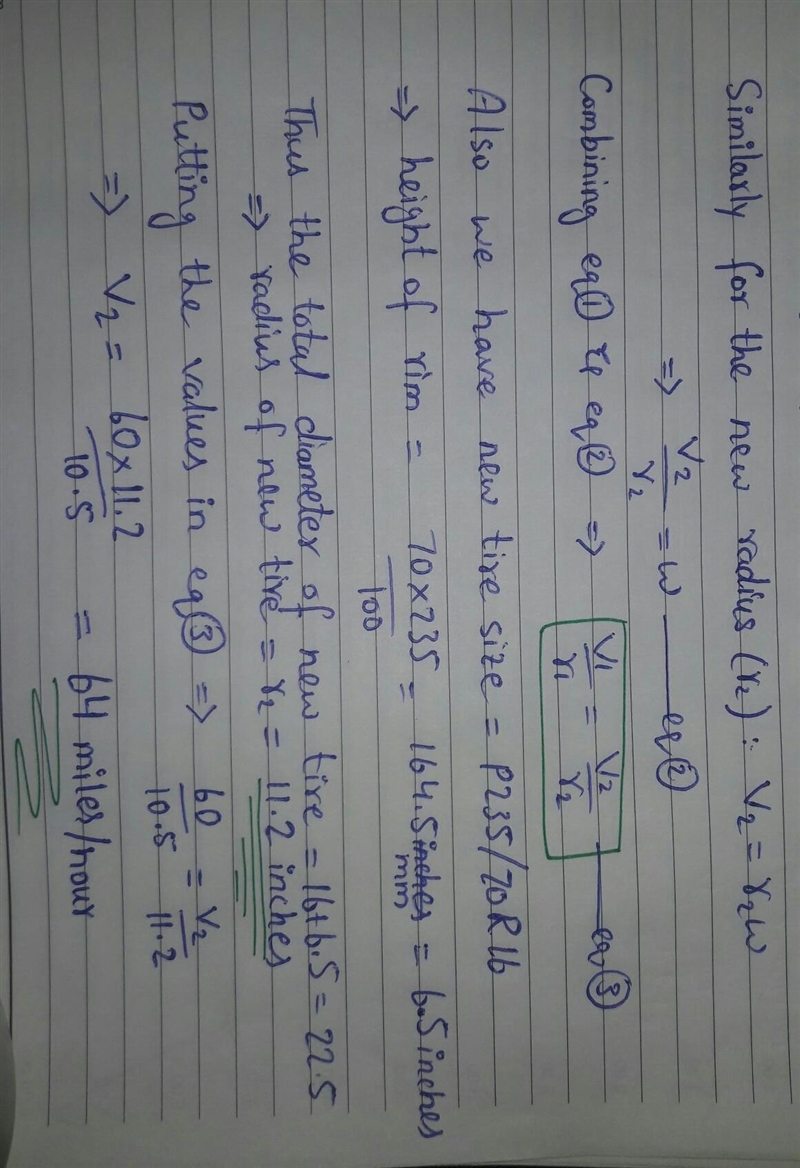 Similarly for the new radius (r₂) :- V₂ = r₂ω
=> V₂/r₂ = ω — eq②
Combining eq① & eq② => V₁/r₁ = V₂/r₂ — eq③
Also we have new tire size = P235/70R16
=> height of rim = 70×235/100 = 164.5 inches mm = 6.5 inches
Thus the total diameter of new tire = 16+6.5 = 22.5
=> radius of new tire = r₂ = 11.2 inches
Putting the values in eq③ => 60/10.5 = V₂/11.2
=> V₂ = 60×11.2/10.5 = 64 miles/hour